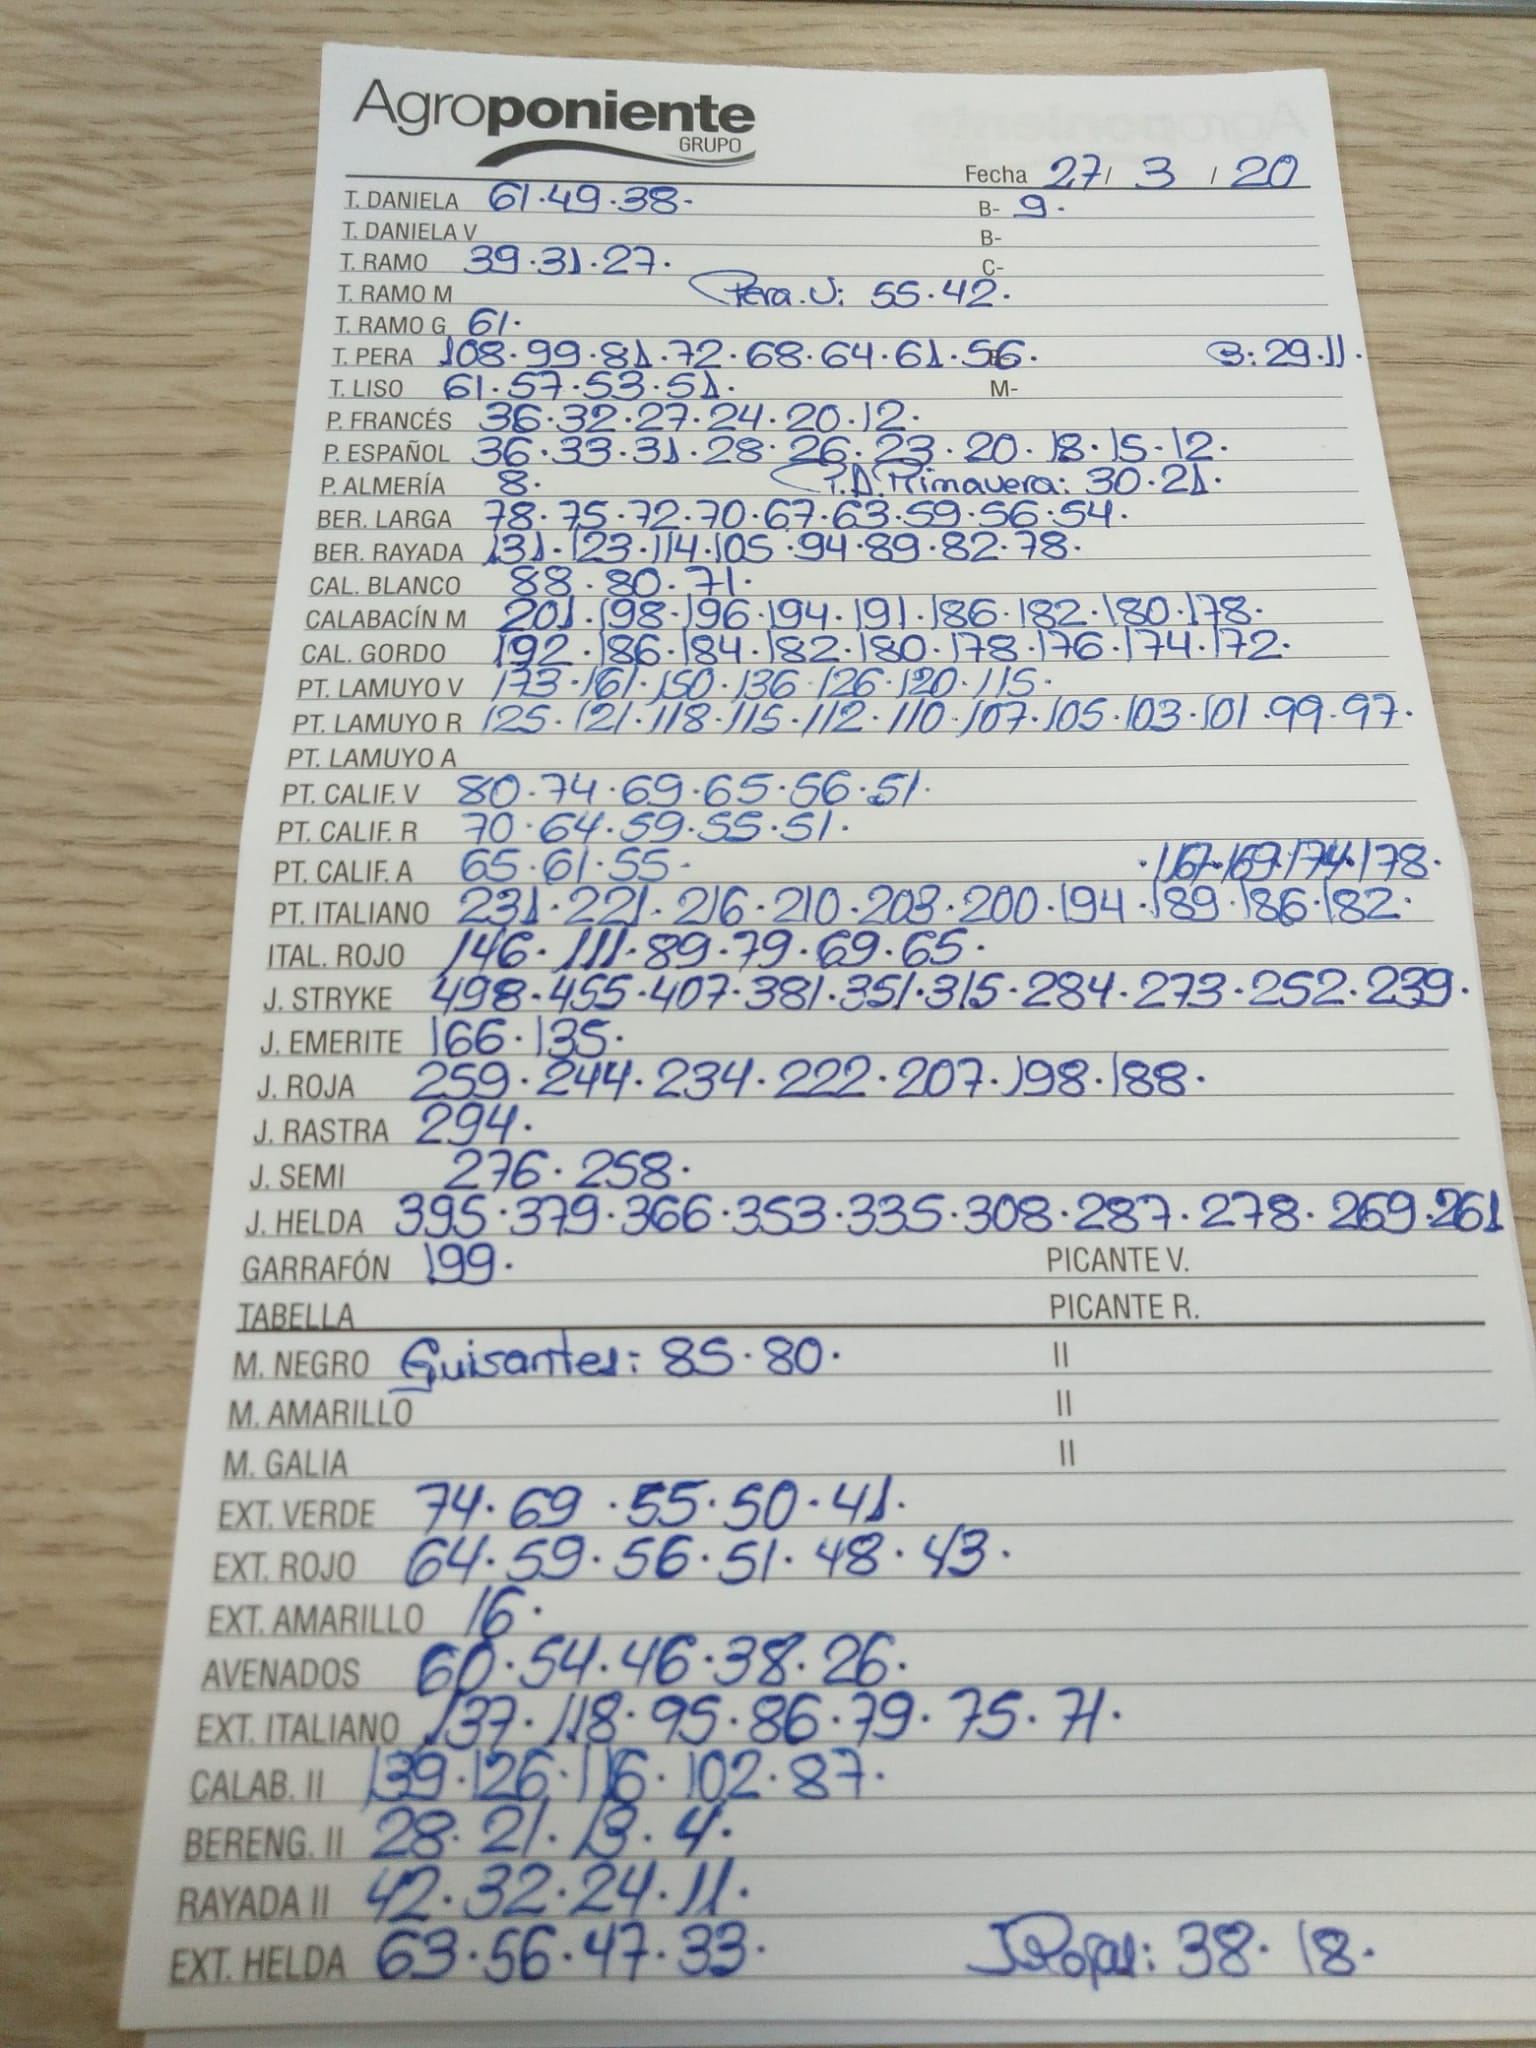 Agroponiente
GRUPO
Fecha 27/ 3 / 20
T. DANIELA 61.49.38. B- 9.
T. DANIELA V B-
T. RAMO 39.31.27. C-
T. RAMO M Pera.V: 55.42.
T. RAMO G 61.
T. PERA 108.99.81.72.68.64.61.56. B:29.11.
T. LISO 61.57.53.51. M-
P. FRANCÉS 36.32.27.24.20.12.
P. ESPAÑOL 36.33.31.28.26.23.20.18.15.12.
P. ALMERÍA 8. Primavera: 30.21.
BER. LARGA 78.75.72.70.67.63.59.56.54.
BER. RAYADA 131.123.114.105.94.89.82.78.
CAL. BLANCO 88.80.71.
CALABACÍN M 201.198.196.194.191.186.182.180.178.
CAL. GORDO 192.186.184.182.180.178.176.174.172.
PT. LAMUYO V 173.161.150.136.126.120.115.
PT. LAMUYO R 125.121.118.115.112.110.107.105.103.101.99.97.
PT. LAMUYO A
PT. CALIF. V 80.74.69.65.56.51.
PT. CALIF. R 70.64.59.55.51.
PT. CALIF. A 65.61.55. .167.169.174.178.
PT. ITALIANO 231.221.216.210.203.200.194.189.186.182.
ITAL. ROJO 146.111.89.79.69.65.
J. STRYKE 498.455.407.381.351.315.284.273.252.239.
J. EMERITE 166.135.
J. ROJA 259.244.234.222.207.198.188.
J. RASTRA 294.
J. SEMI 276.258.
J. HELDA 395.379.366.353.335.308.287.278.269.261
GARRAFÓN 199. PICANTE V.
TABELLA PICANTE R.
M. NEGRO Guisantes: 85.80. II
M. AMARILLO II
M. GALIA II
EXT. VERDE 74.69.55.50.41.
EXT. ROJO 64.59.56.51.48.43.
EXT. AMARILLO 16.
AVENADOS 60.54.46.38.26.
EXT. ITALIANO 137.118.95.86.79.75.71.
CALAB. II 139.126.116.102.87.
BERENG. II 28.21.13.4.
RAYADA II 42.32.24.11.
EXT. HELDA 63.56.47.33. JRojas: 38.18.